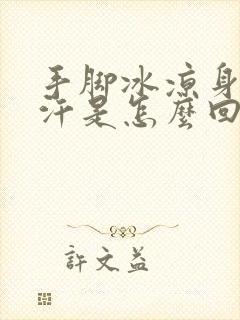 手脚冰凉身
汗是怎麼回
許文益